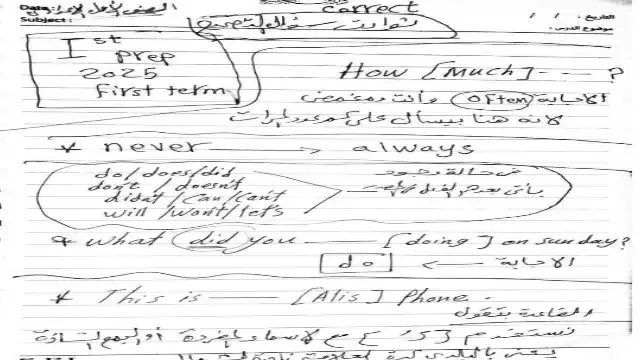 Date:
الصف الأول الإعدادى
correct
التاريخ : / /
Subject :
موضوع الدرس :
Ist
prep
2025
First term
How [Much] ---- ?
الاجابة (often) وأنت مغمض
لانه هنا بيسأل على عدد المرات
* never → always
do / does / did
don't / doesn't
didn't / can / can't
will / won't / let's
فى حالة وجود
يأتى بعدهم الفعل
* What did you ____ [doing] on sunday?
الاجابة ← do
* This is ____ [Alis] Phone.
القاعدة بتقول
نستخدم مع الاسماء المفردة أو الجمع الشاذة